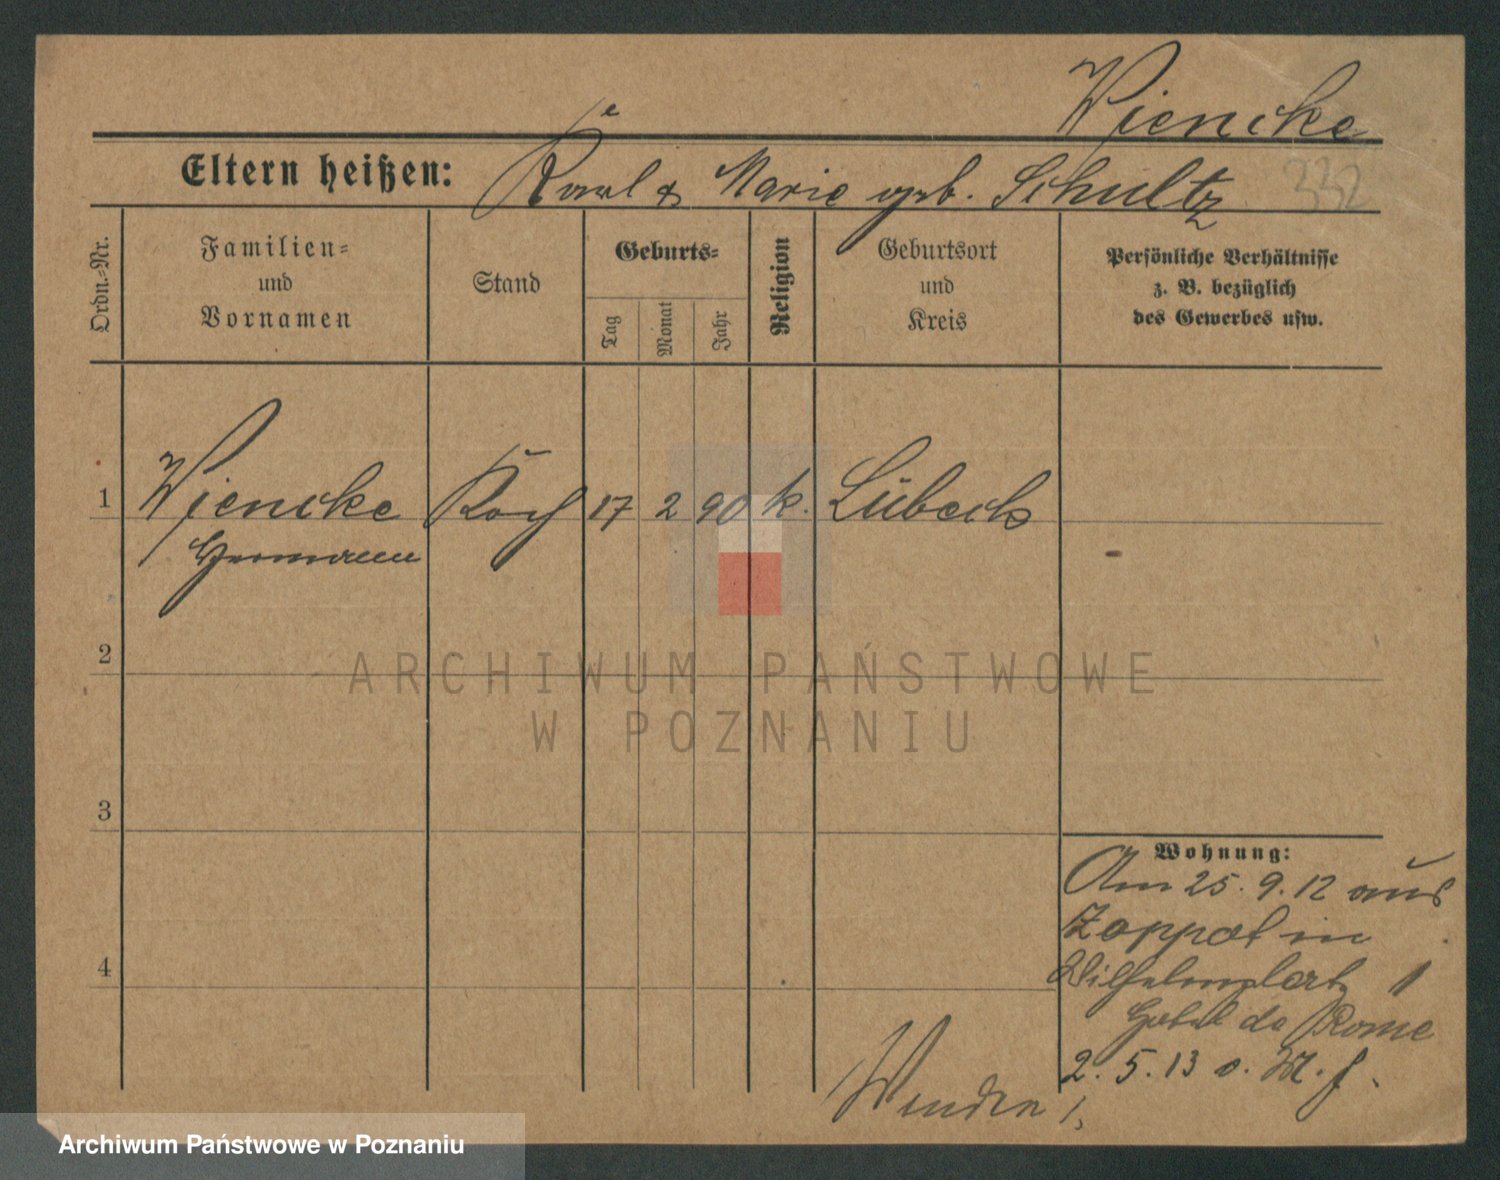 Wiencke
332
Eltern heißen: Karl & Marie geb. Schultz
Ordn.=Nr.
Familien=
und
Vornamen
Stand
Geburts=
Tag
Monat
Jahr
Religion
Geburtsort
und
Kreis
Persönliche Verhältnisse
z. B. bezüglich
des Gewerbes usw.
1 Wiencke Koch 17 2 90 k. Lübeck
Hermann
2
ARCHIWUM PAŃSTWOWE
W POZNANIU
3
4
Wohnung:
Am 25. 9. 12 aus
Zoppot in
Wilhelmplatz 1
Hotel de Rome
2. 5. 13 o. M. f.
Wenden!
Archiwum Państwowe w Poznaniu